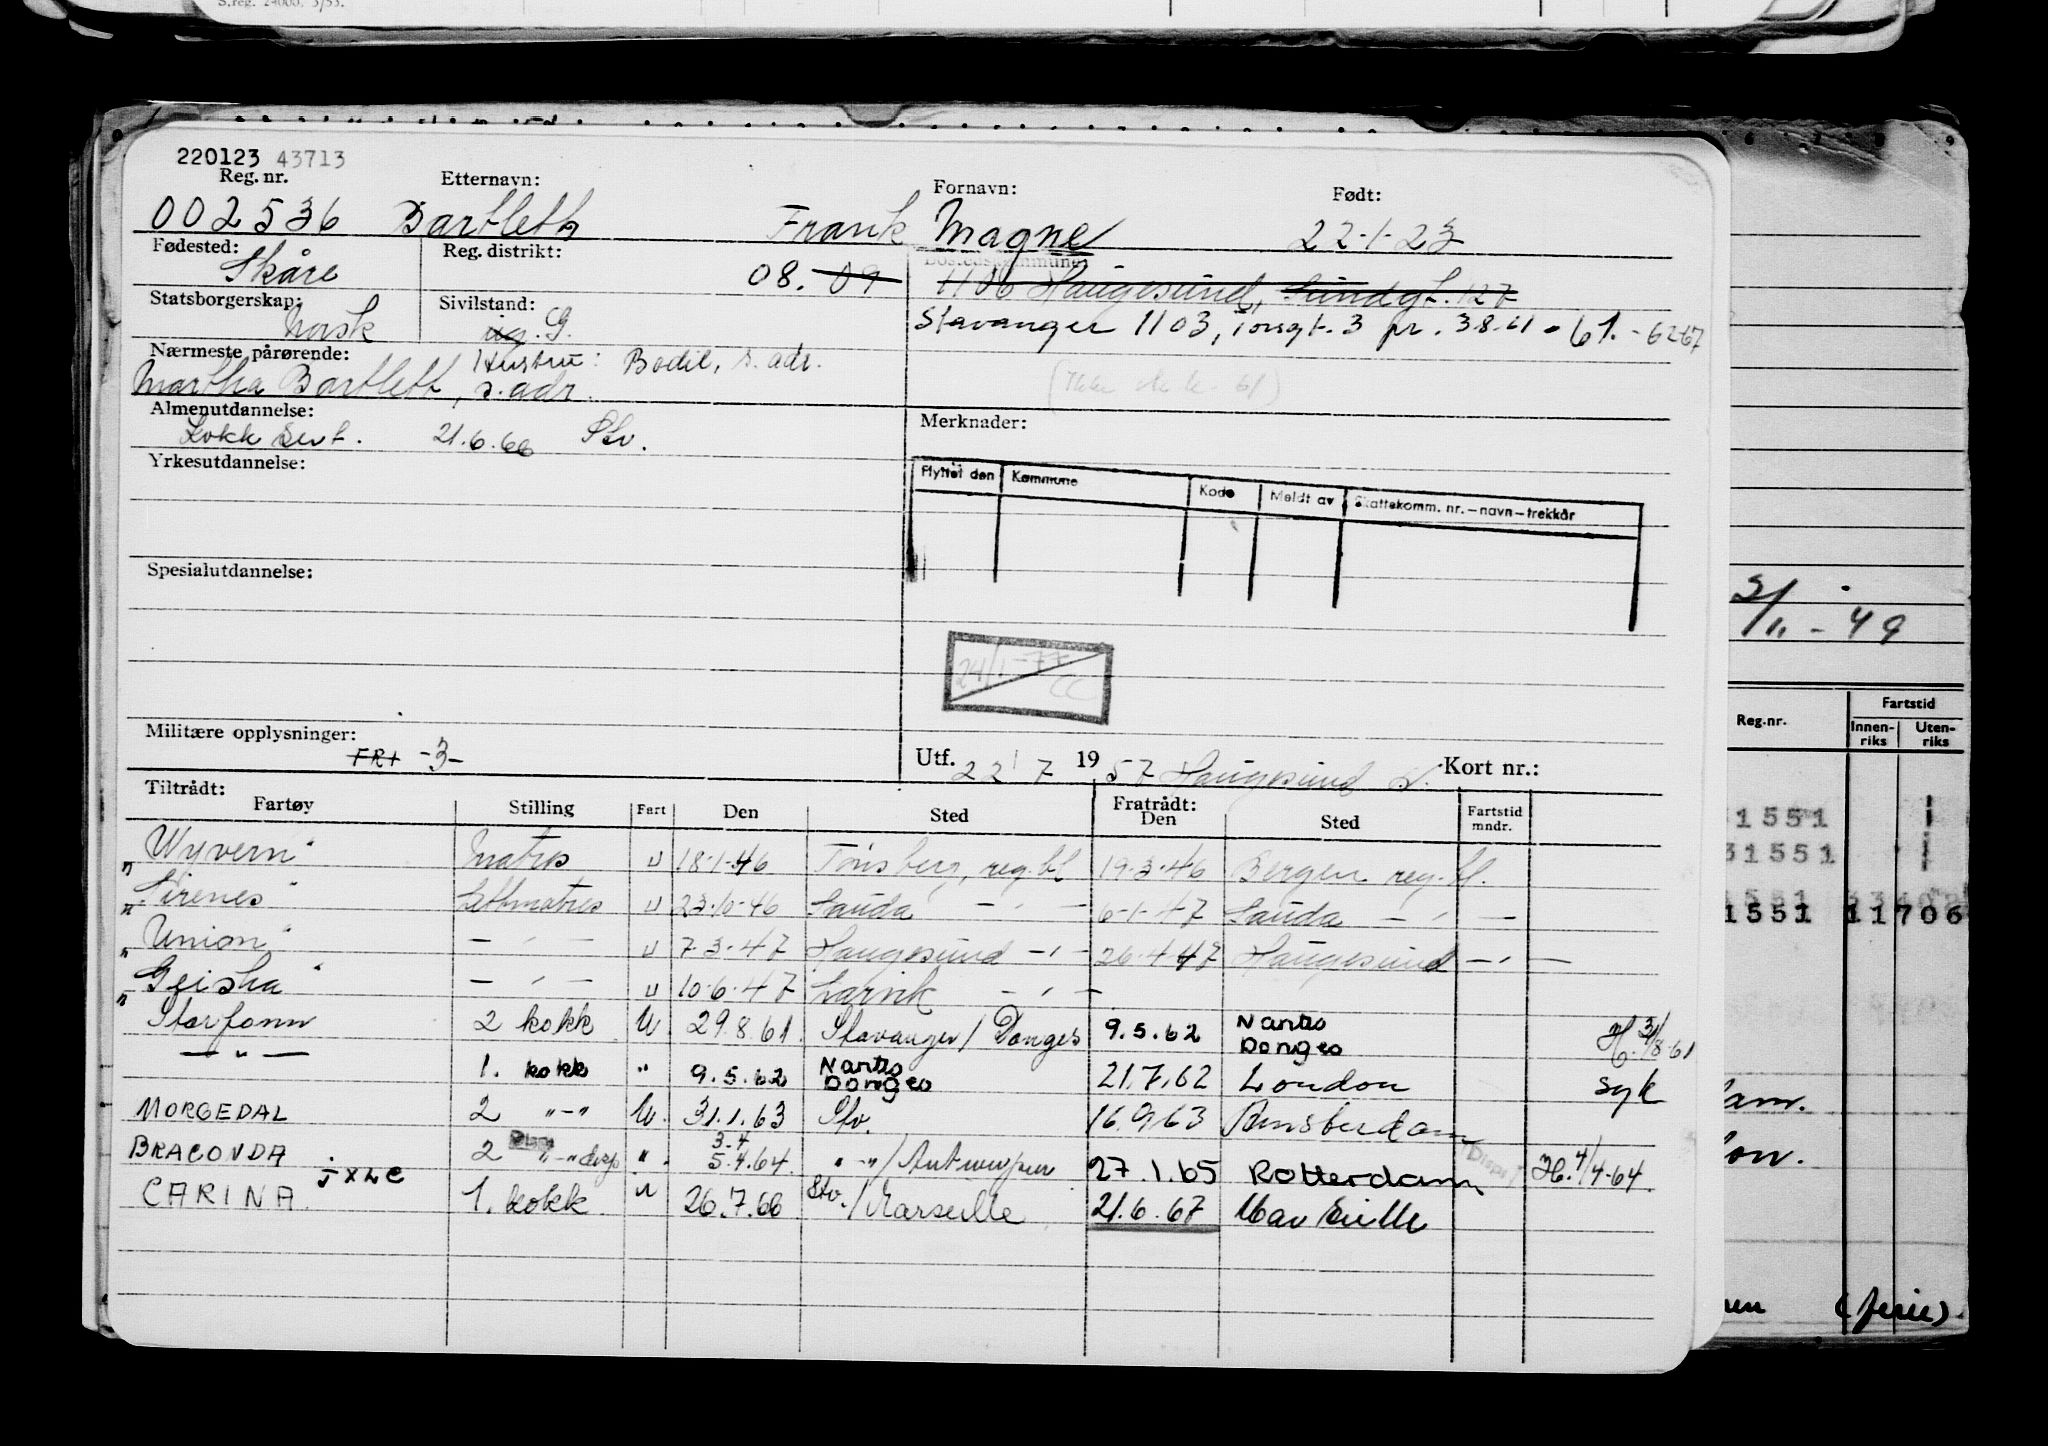 S.reg. 24000. 3/53.
220123 43713
Reg. nr. Etternavn: Fornavn: Født:
002536 Bartleth Frank Magne 22-1-23
Fødested: Reg. distrikt: Bostedskommune:
Skåre 08. 09 1106 Haugesund, Sundgt. 127
Statsborgerskap: Sivilstand: Stavanger 1103, Torsgt. 3 pr. 3.8.61 - 61. - 6267
Norsk ug. G.
Nærmeste pårørende: Hustru: Bodil, s. adr.
Martha Bartlett, s. adr.
Almenutdannelse: Merknader:
Kokk Sert. 21.6.66 Stv.
Yrkesutdannelse:
Flyttet den Kommune Kode Meldt av Skattekomm. nr. – navn – trekkår
Spesialutdannelse:
24/1 -77 CC
3/11 - 49
Militære opplysninger: FRI -3-
Utf. 22/7 1957 Haugesund Kort nr.:
Tiltrådt: Fratrådt:
Fartøy Stilling Fart Den Sted Den Sted Fartstid mndr.
"Wyvern" Matros U 18-1-46 Tønsberg, reg. bl 19-3-46 Bergen reg. bl.
"Sirenes" Lettmatros U 23-10-46 Sauda - " - 6-1-47 Sauda - " -
"Union" - " - U 7-3-47 Haugesund - " - 26-4-47 Haugesund - " -
"Geisha" - " - U 10-6-47 Larvik - " -
Storfonn 2 kokk U. 29.8.61 Stavanger / Donges 9.5.62 Nantes Donges H. 31/8-61
- " - 1. kokk " 9.5.62 Nantes Donges 21.7.62 London syk
MORGEDAL 2 "-" U. 31.1.63 Stv. 16.9.63 Amsterdam
BRACONDA 2 "-" disp ". 3-4 5.4.64. "-" / Antwerpen 27.1.65 Rotterdam Disp. H. 4/4-64.
JXLC
CARINA 1. kokk " 26.7.66 Stv. / Marseille 21.6.67 Marseille
Reg.nr. Fartstid
Innenriks Utenriks
1551
31551
1551 11706
dam.
don.
(ferie)